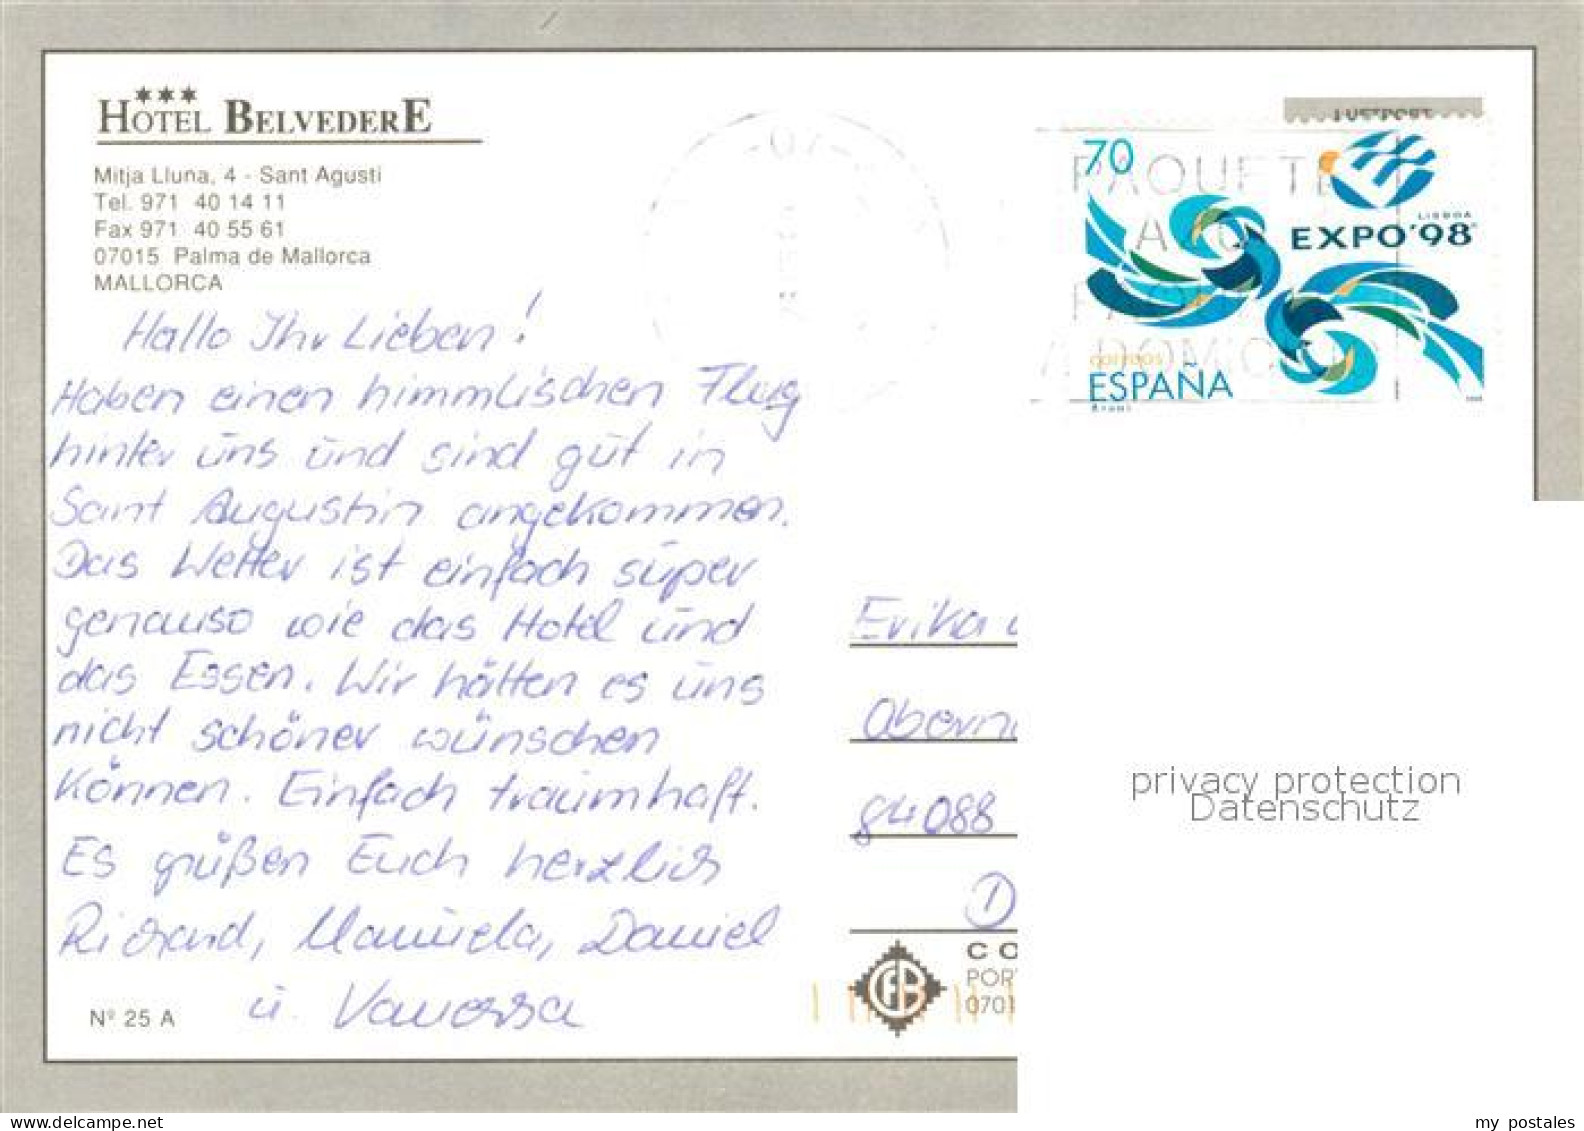 HOTEL BELVEDERE
Mitja Lluna, 4 - Sant Agusti
Tel. 971 40 14 11
Fax 971 40 55 61
07015 Palma de Mallorca
MALLORCA
Hallo Ihr Lieben!
Haben einen himmlischen Flug
hinter uns und sind gut in
Sant Augustin angekommen.
Das Wetter ist einfach super
genauso wie das Hotel und
das Essen. Wir hätten es uns
nicht schöner wünschen
können. Einfach traumhaft.
Es grüßen Euch herzlich
Richard, Manuela, Daniel
u. Vanessa
Nº 25 A
70
LISBOA
EXPO'98
correos
ESPAÑA
PAQUETE
AZUL
A DOMICILIO
Erika
84088
D
CFB
privacy protection
Datenschutz
https://www.delcampe.net
my_postales